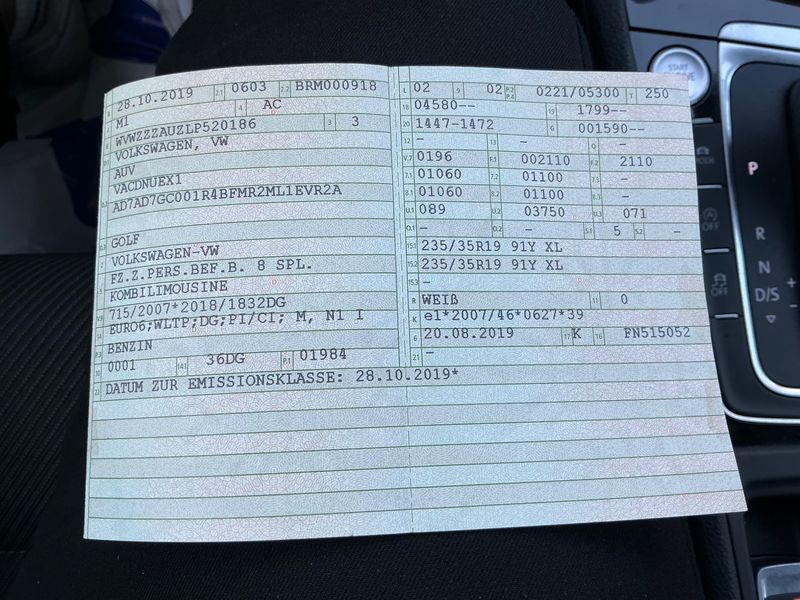 B 28.10.2019 2.1 0603 2.2 BRM000918
J M1 4 AC
E WVWZZZAUZLP520186 3 3
VOLKSWAGEN, VW
AUV
VACDNUEX1
AD7AD7GC001R4BFMR2ML1EVR2A
GOLF
VOLKSWAGEN-VW
FZ.Z.PERS.BEF.B. 8 SPL.
KOMBILIMOUSINE
715/2007*2018/1832DG
EURO6;WLTP;DG;PI/CI; M, N1 I
BENZIN
0001 14.1 36DG P.1 01984
22 DATUM ZUR EMISSIONSKLASSE: 28.10.2019*
L 02 9 02 P.2 P.4 0221/05300 T 250
18 04580-- 19 1799--
20 1447-1472 G 001590--
12 - 13 - Q -
V.7 0196 F.1 002110 F.2 2110
7.1 01060 7.2 01100 7.3 -
8.1 01060 8.2 01100 8.3 -
U.1 089 U.2 03750 U.3 071
O.1 - O.2 - S.1 5 S.2 -
15.1 235/35R19 91Y XL
15.2 235/35R19 91Y XL
15.3 -
R WEIß 11 0
K e1*2007/46*0627*39
6 20.08.2019 17 K 16 FN515052
21 -
START
ENGINE
MODE
OFF
OFF
P
R
N
D/S
+
-